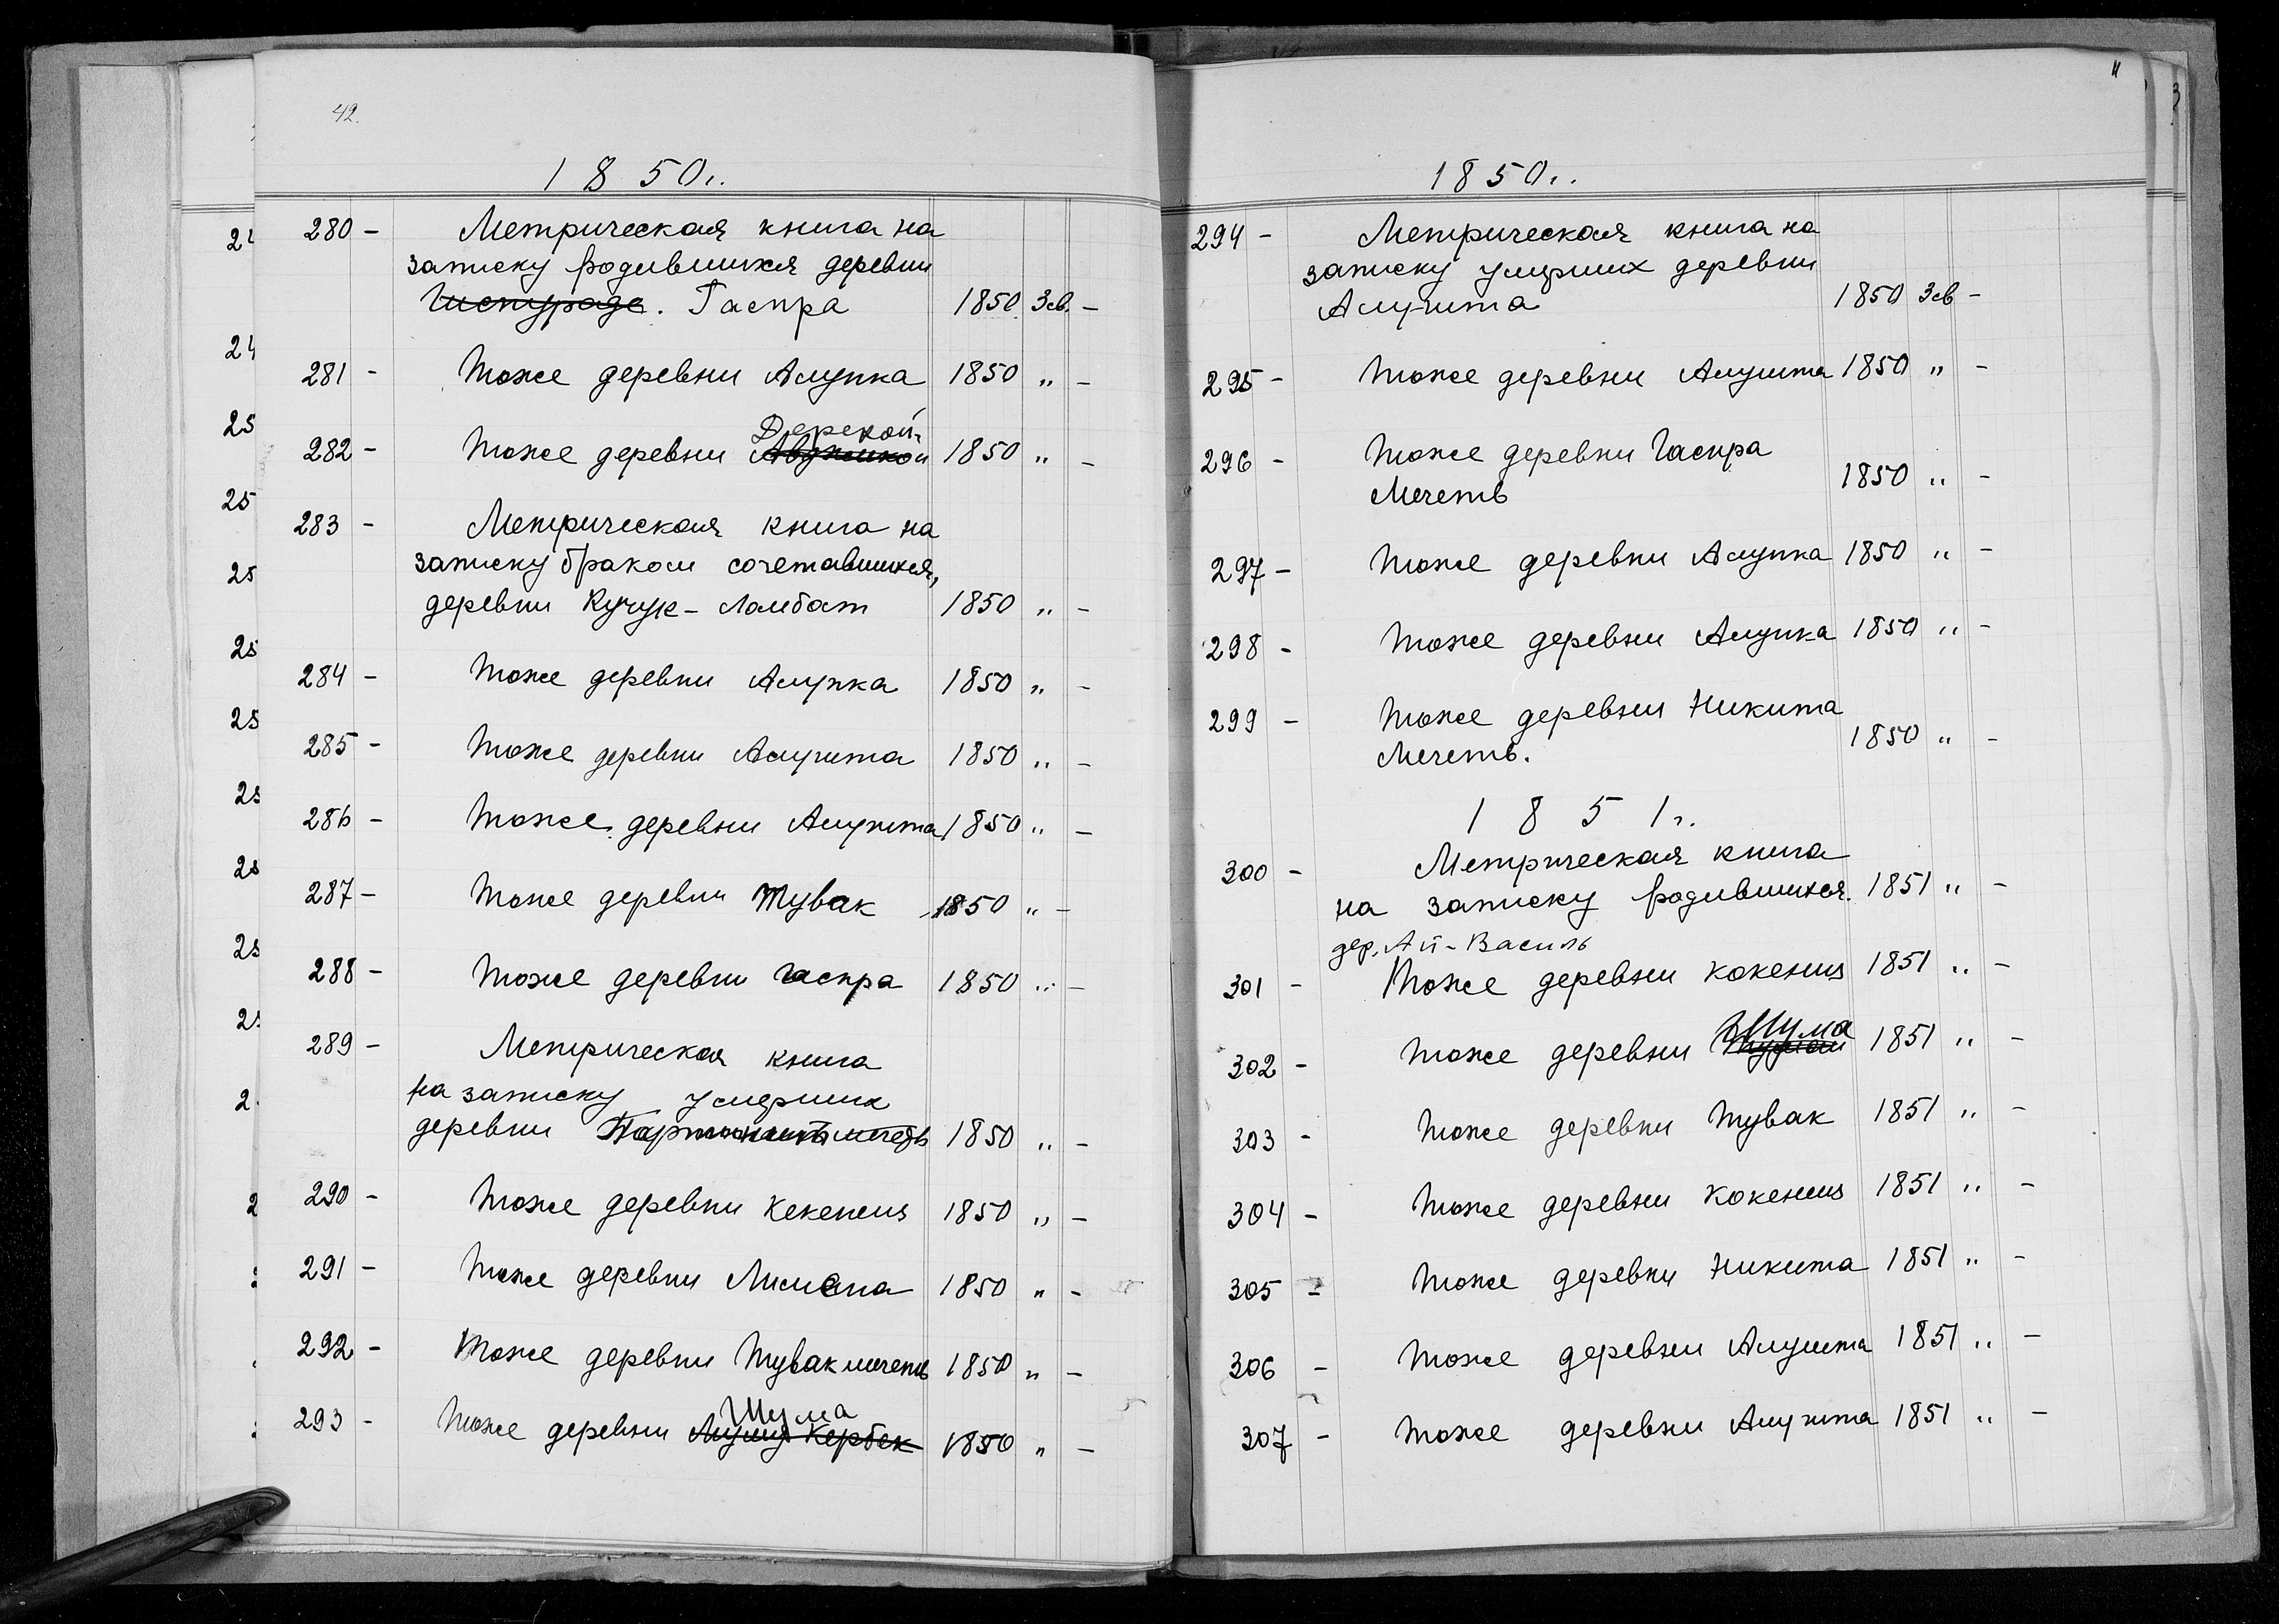 42.
1850г.
280 - Метрическая книга на
записку родившихся деревни
Гаспра 1850 Зсв. -
281 - Тоже деревни Алупка 1850 " -
Дерекой
282 - Тоже деревни 1850 " -
283 - Метрическая книга на
записку браком сочетавшихся,
деревни Кучук-Ламбат 1850 " -
284 - Тоже деревни Алупка 1850 " -
285 - Тоже деревни Алушта 1850 " -
286 - Тоже деревни Алушта 1850 " -
287 - Тоже деревни Тувак 1850 " -
288 - Тоже деревни Гаспра 1850 " -
289 - Метрическая книга
на записку умерших
деревни 1850 " -
290 - Тоже деревни Кекенеиз 1850 " -
291 - Тоже деревни Лимена 1850 " -
292 - Тоже деревни Тувак мечеть 1850 " -
Шума
293 - Тоже деревни Кербек 1850 " -
11
1850г.
294 - Метрическая книга на
записку умерших деревни
Алушта 1850 Зсв -
295 - Тоже деревни Алушта 1850 " -
296 - Тоже деревни Гаспра
Мечеть 1850 " -
297 - Тоже деревни Алупка 1850 " -
298 - Тоже деревни Алупка 1850 " -
299 - Тоже деревни Никита
Мечеть. 1850 " -
1851г.
300 - Метрическая книга
на записку родившихся. 1851 " -
дер. Ай-Василь
301 - Тоже деревни Кокенеиз 1851 " -
Шума
302 - Тоже деревни 1851 " -
303 - Тоже деревни Тувак 1851 " -
304 - Тоже деревни Кокенеиз 1851 " -
305 - Тоже деревни Никита 1851 " -
306 - Тоже деревни Алушта 1851 " -
307 - Тоже деревни Алушта 1851 " -